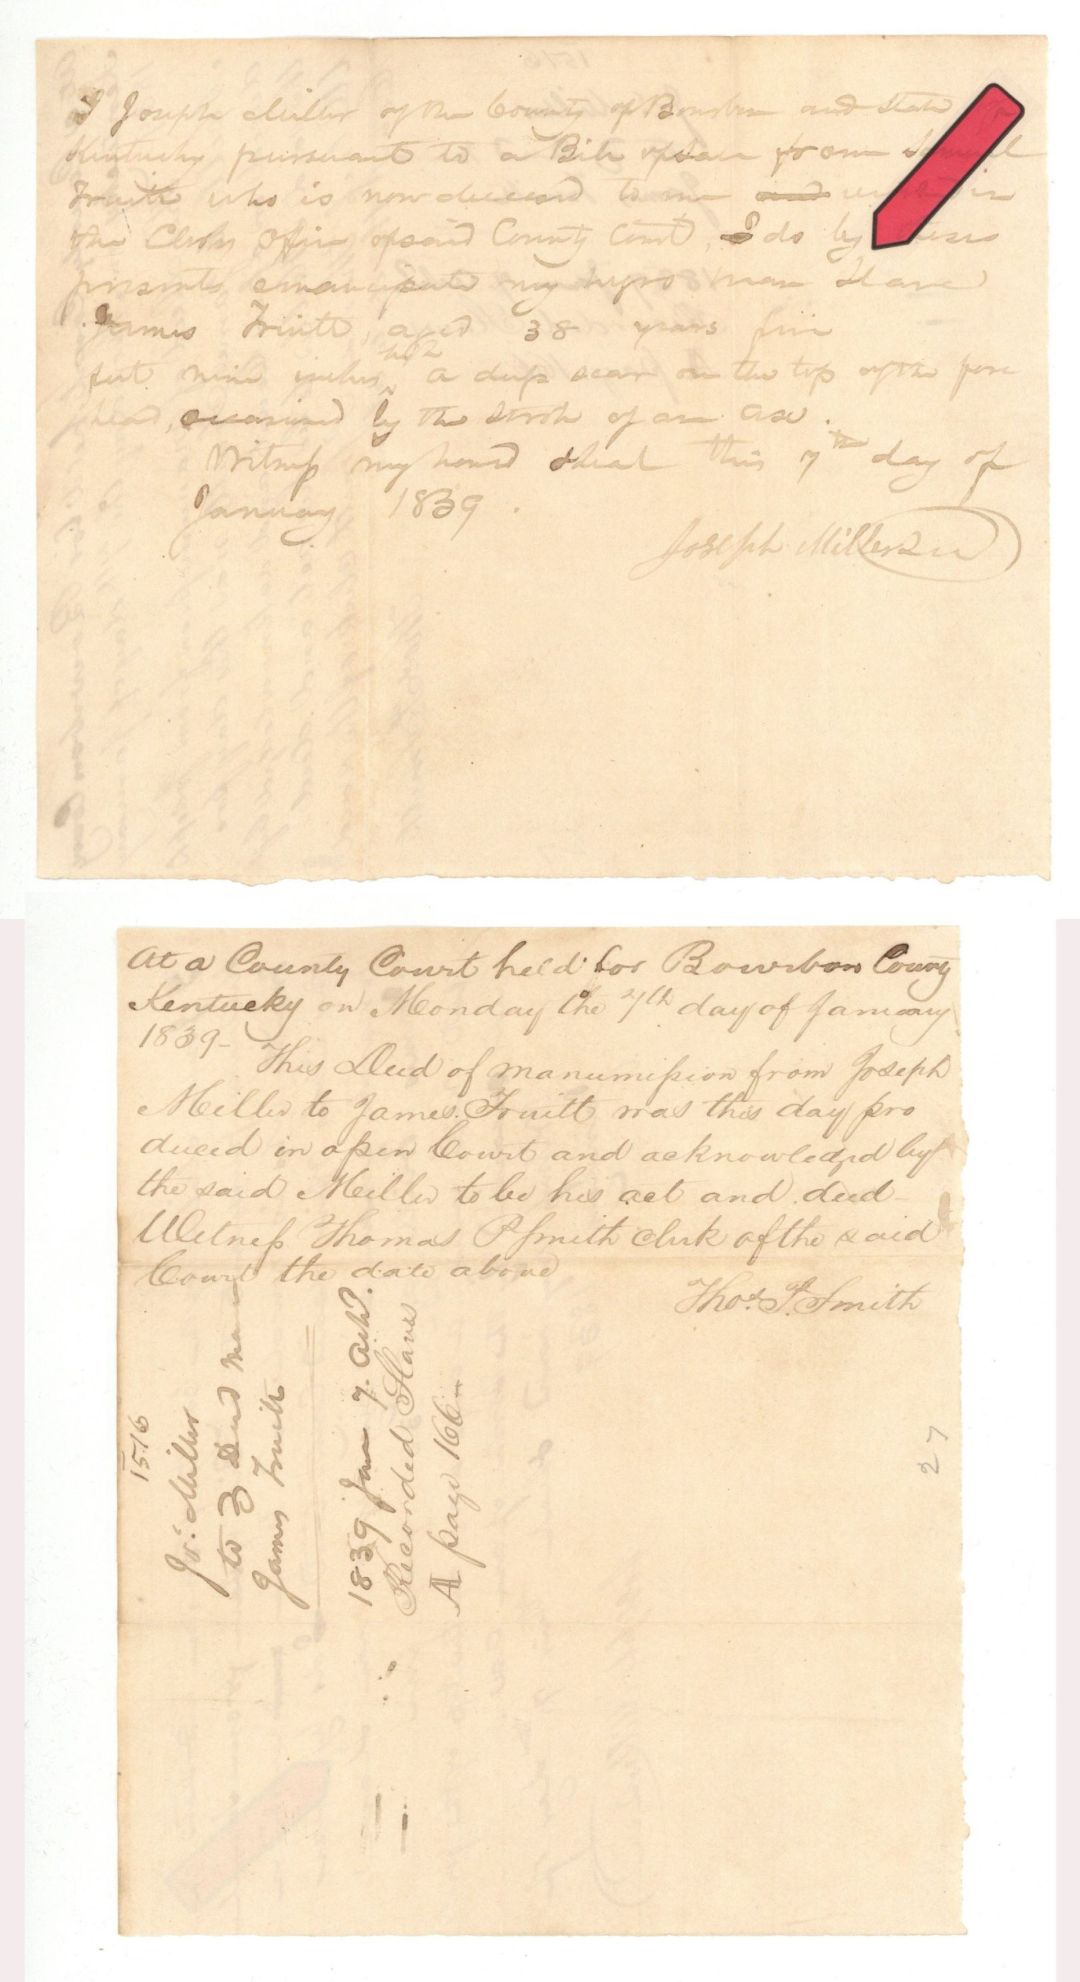 I Joseph Miller of the County of Bourbon and State
Kentucky pursuant to a Bile of Sale from
Truitt who is now deceased to me and in
the Clerks Office of said County Court, I do by
presents emancipate my negro man Slave
James Truitt, aged 38 years five
feet nine inches with a deep scar on the top of the fore
head, occasioned by the stroke of an axe.
Witness my hand & seal this 7th day of
January 1839.
Joseph Miller
At a County Court held for Bourbon County
Kentucky on Monday the 7th day of January
1839-
This Deed of manumission from Joseph
Miller to James Truitt was this day pro
duced in open Court and acknowledged by
the said Miller to be his act and deed-
Witness Thomas P Smith clerk of the said
Court the date above
Thos. P. Smith
1516
Jos. Miller
to } Deed Ma
James Truitt
1839 Jan 7. Ackd.
Recorded Slave
A page 166
27